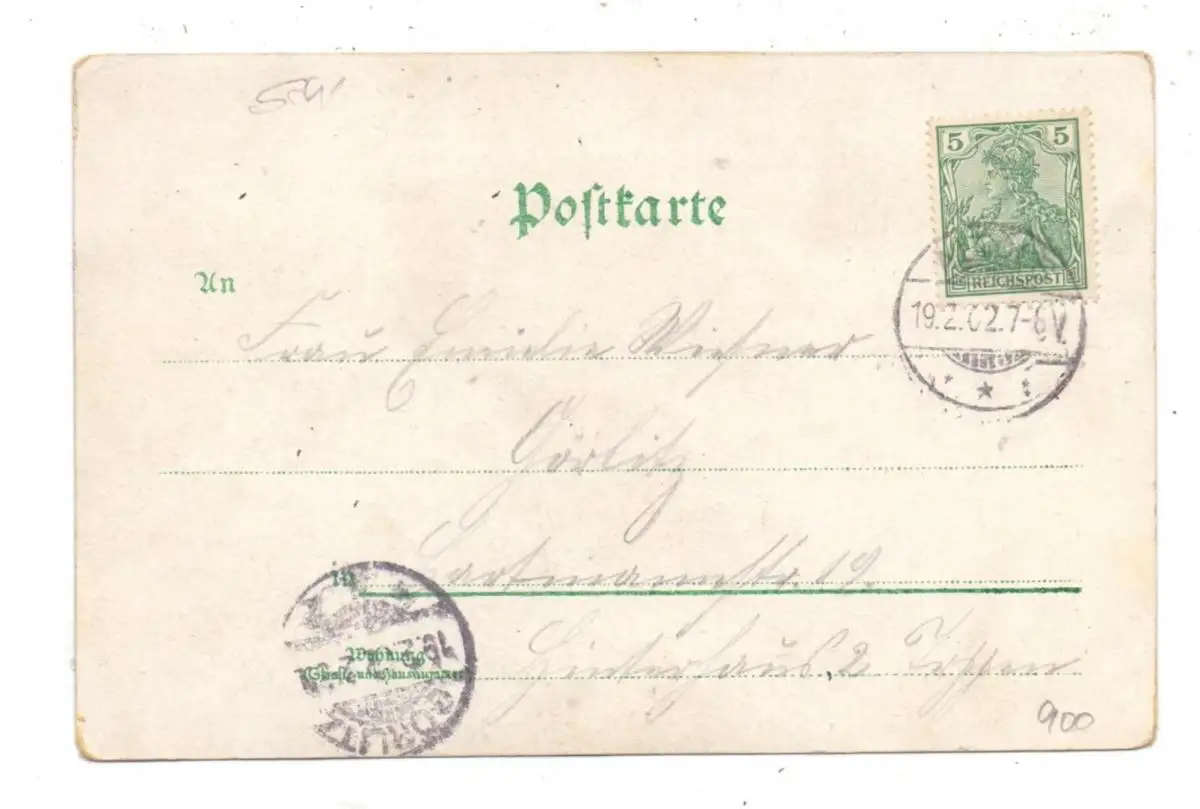 5 5
Postkarte
REICHSPOST
An
19.2.02.7-8V.
Frau Emilie Wiesner
Görlitz
in
Hartmannstr. 19.
Wohnung
(Straße und Hausnummer)
Hinterhaus 2 Treppen
GÖRLITZ
900